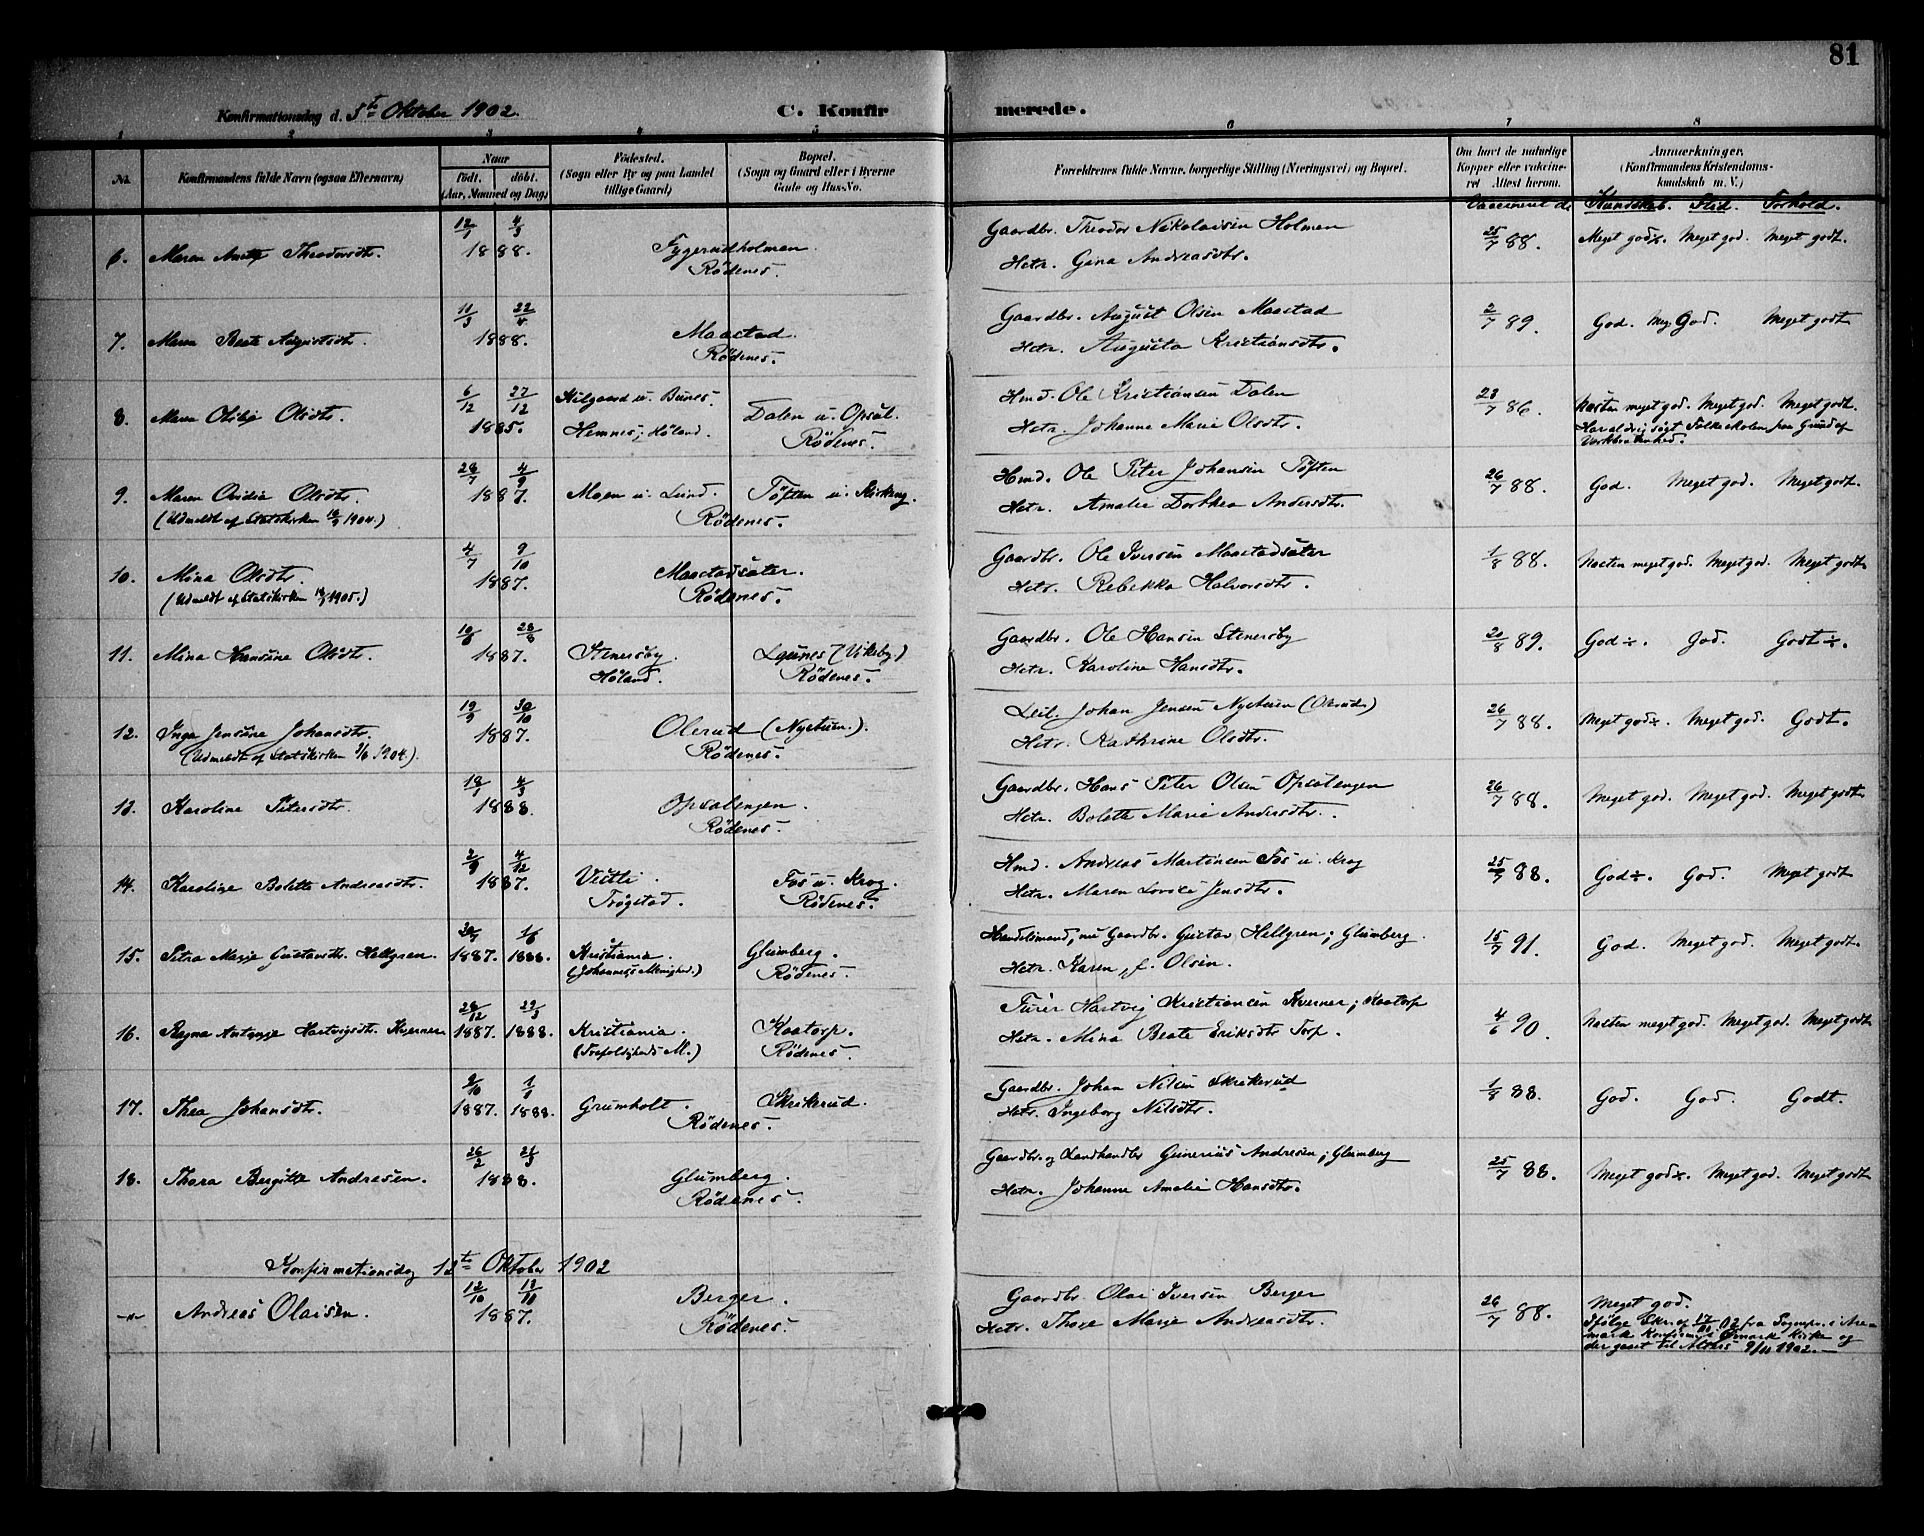 81
Konfirmationsdag d. 5te Oktober 1902.
C. Konfirmerede.
1 2 3 4 5 6 7 8
No.
Konfirmandens fulde Navn (ogsaa Efternavn)
Naar
födt. döbt.
(Aar, Maaned og Dag)
Födested.
(Sogn eller By og paa Landet
tillige Gaard)
Bopæl.
(Sogn og Gaard eller i Byerne
Gade og Hus-No.
Forældrenes fulde Navne, borgerlige Stilling (Næringsvei) og Bopæl.
Om havt de naturlige
Kopper eller vakcine-
ret Attest herom.
Anmærkninger.
(Konfirmandens Kristendoms-
kundskab m. V.)
Kundskab. Flid. Forhold.
6. Theodorsdtr. 12/1 4/3 1888.
Rödenes.
Gaardbr. Theodor Nikolaisen Holmen
Hstr. Gina Andreasdtr.
25/7 88. Meget god. Meget godt.
7. Maren Beate Augustsdtr. 11/3 22/4 1888.
Maastad.
Rödenes.
Gaardbr. August Olsen Maastad
Hstr. Augusta Kristiansdtr.
2/7 89. God. Meg. God. Meget godt
8. Olsdtr. 6/12 27/12 1885.
Hemnes, Höland.
Dalen u. Opsal.
Rödenes.
Hmd. Ole Kristiansen Dalen
Hstr. Johanne Marie Olsdtr.
23/7 86. Næsten meget god. Meget god. Meget godt.
9. Maren Olsdtr. 28/7 4/9 1887.
(Udmeldt af Statskirken 1904.)
Moen u. Lund.
Töften u. Kirkeng.
Rödenes.
Hmd. Ole Peter Johansen Töften
Hstr. Amalie Dorthea Andersdtr.
26/7 88. God. Meget god. Meget godt.
10. Mina Olsdtr. 4/7 9/10 1887.
(Udmeldt af Statskirken 1905.)
Maastadsäter.
Rödenes.
Gaardbr. Ole Iversen Maastadsäter
Hstr. Rebekka Halvorsdtr.
1/8 88. Næsten meget god. Meget god. Meget godt
11. Mina Hansine Olsdtr. 28/8 1887.
Stenersby.
Höland.
Rödenes.
Gaardbr. Ole Hansen Stenersby
Hstr. Karoline Hansdtr.
20/8 89. God ÷. God. Godt ÷.
12. Inga Jensine Johansdtr. 19/9 30/10 1887.
(Udmeldt af Statskirken 9/6 1904.)
Olerud (Nystuen.).
Rödenes.
Leil. Johan Jensen Nystuen (Olerud)
Hstr. Kathrine Olsdtr.
26/7 88. Meget god. Meget god. Godt.
13. Karoline Petersdtr. 18/1 4/3 1888.
Opsalengen.
Rödenes.
Gaardbr. Hans Peter Olsen Opsalengen
Hstr. Bolette Marie Andersdtr.
26/7 88. Meget god. Meget god. Meget godt
14. Karoline Bolette Andreasdtr. 2/9 4/12 1887.
Trögstad.
Fos u. Krog.
Rödenes.
Hmd. Andreas Martinsen Fos u. Krog
Hstr. Maren Lovise Jensdtr.
25/7 88. God ÷. God. Meget godt
15. Petra Marie Gustavsdtr. Hellgren. 1887. 1888.
Kristiania.
(Johannes Menighed.)
Glumberg.
Rödenes.
Handelsmand, nu Gaardbr. Gustav Hellgren; Glumberg.
Hstr. Karen, f. Olsen.
15/7 91. God. Meget god. Meget godt.
16. Hartvigsdtr. Kverner 28/12 1887. 1888.
Kristiania.
(Trefoldigheds M.)
Kaatorp.
Rödenes.
Hartvig Kristiansen Kverner; Kaatorp
Hstr. Mina Beate Eriksdtr Torp.
4/6 90. Næsten meget god. Meget god. Meget godt
17. Thea Johansdtr. 2/10 1/1 1887. 1888.
Grumholt.
Skrikerud.
Rödenes.
Gaardbr. Johan Nilsen Skrikerud
Hstr. Ingeborg Nilsdtr.
1/8 88. God. God. Godt.
18. Thora Bergitte Andresen. 26/2 21/3 1888.
Glumberg.
Rödenes.
Gaardbr. og Landhandler Gunerius Andresen; Glumberg
Hstr. Johanne Amalie Hansdtr.
25/7 88. Meget god. Meget god. Meget godt
Konfirmationsdag 12te Oktober 1902
-"- Andreas Olaisen. 12/10 1887.
Berger.
Rödenes.
Gaardbr. Olai Iversen Berger
Hstr. Thore Marie Andreasdtr.
26/7 88. Meget god.
der gaaet til Alters 9/11 1902.